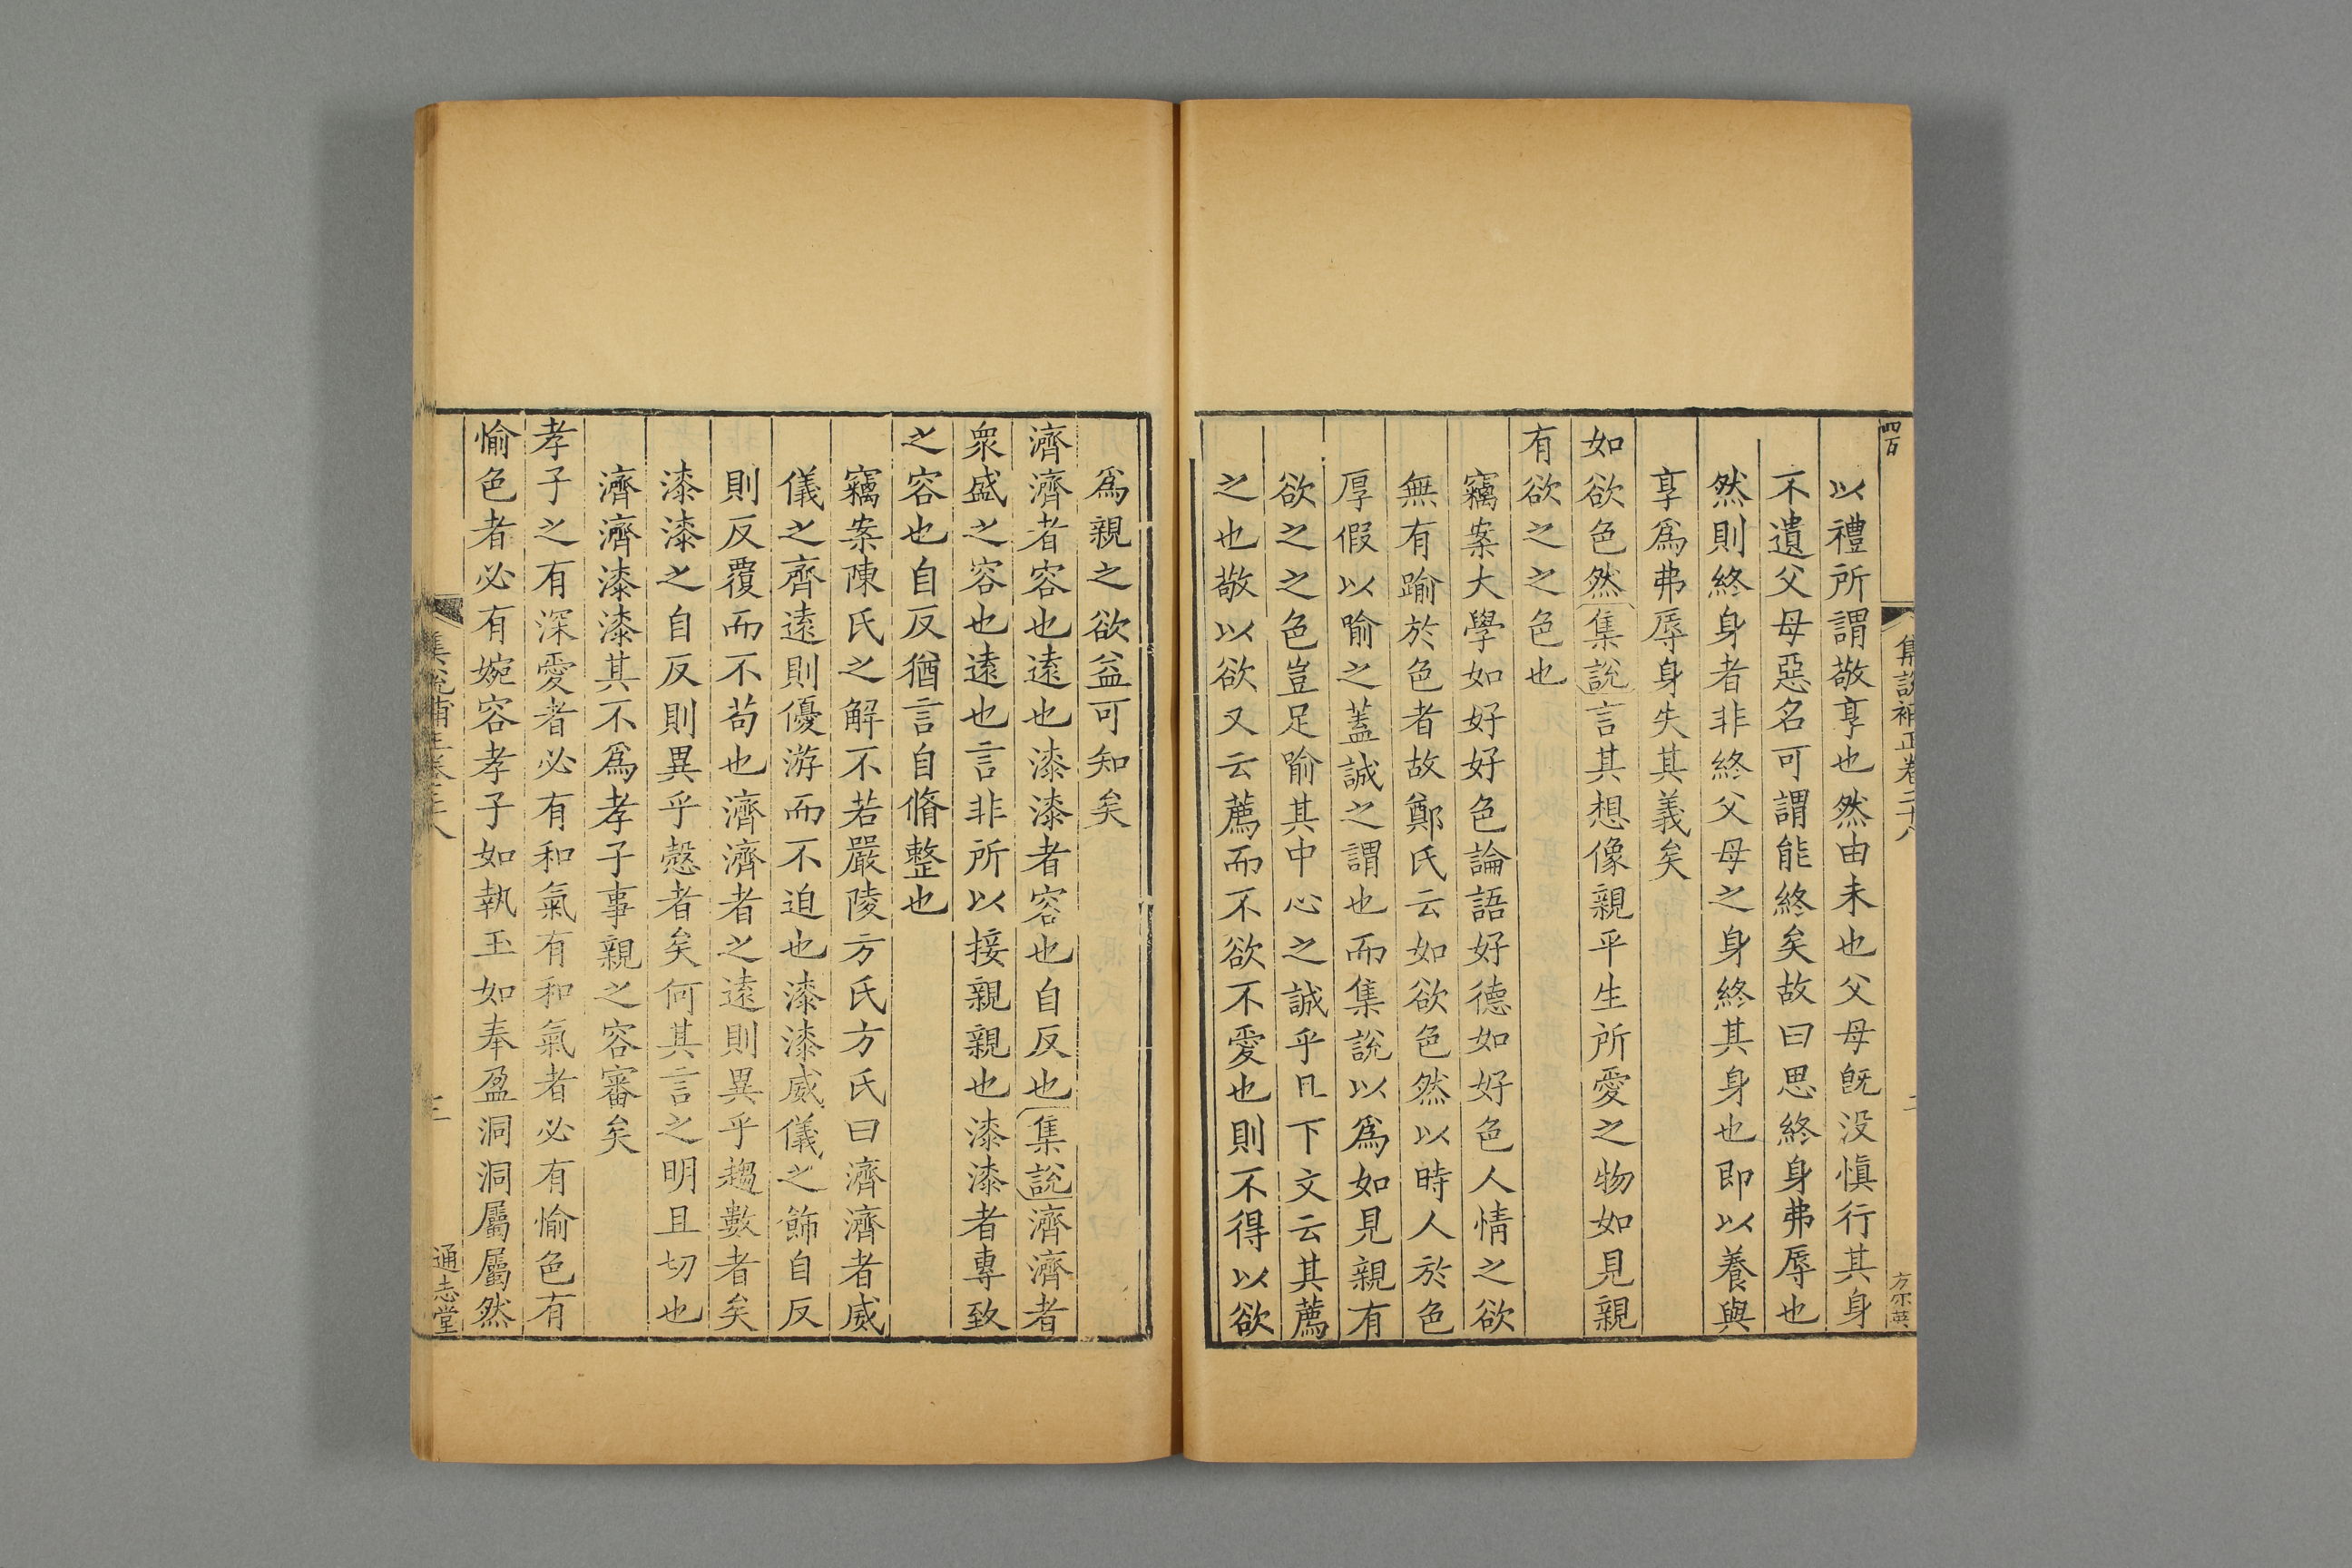 四百
集説補正卷二十八
二
方尔英
以禮所謂敬享也然由未也父母旣没愼行其身
不遺父母惡名可謂能終矣故曰思終身弗辱也
然則終身者非終父母之身終其身也即以養與
享爲弗辱身失其義矣
如欲色然集説言其想像親平生所愛之物如見親
有欲之之色也
竊案大學如好好色論語好德如好色人情之欲
無有踰於色者故鄭氏云如欲色然以時人於色
厚假以喻之蓋誠之謂也而集説以爲如見親有
欲之之色豈足喻其中心之誠乎且下文云其薦
之也敬以欲又云薦而不欲不愛也則不得以欲
爲親之欲益可知矣
濟濟者容也遠也漆漆者容也自反也集説濟濟者
衆盛之容也遠也言非所以接親親也漆漆者專致
之容也自反猶言自脩整也
竊案陳氏之解不若嚴陵方氏方氏曰濟濟者威
儀之齊遠則優游而不迫也漆漆威儀之飾自反
則反覆而不苟也濟濟者之遠則異乎趨數者矣
漆漆之自反則異乎愨者矣何其言之明且切也
濟濟漆漆其不爲孝子事親之容審矣
孝子之有深愛者必有和氣有和氣者必有愉色有
愉色者必有婉容孝子如執玉如奉盈洞洞屬屬然
集説補正卷二十八
三
通志堂